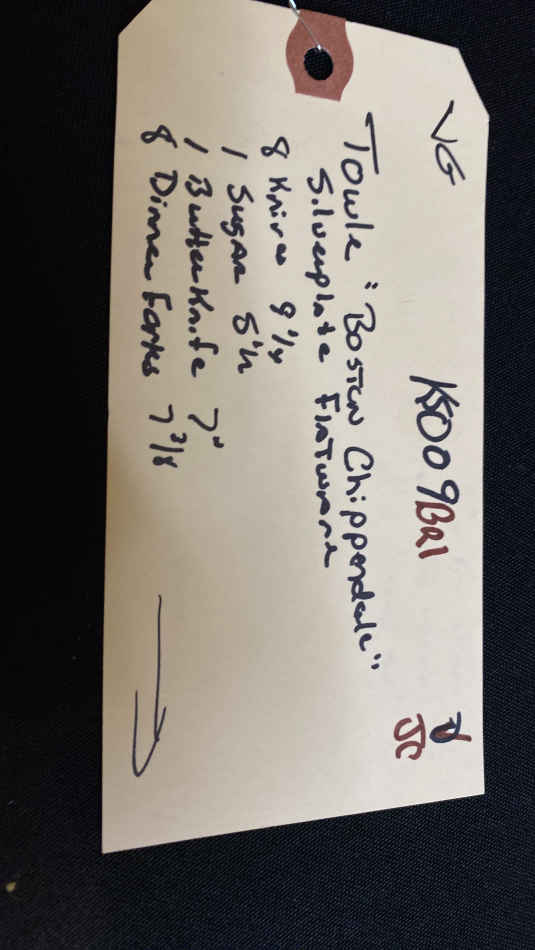 VG K5009BQ1
JC
Towle "Boston Chippendale"
Silverplate Flatware
8 Knives 9 1/4
1 Sugar 5 1/2
1 Butter Knife 7"
8 Dinner Forks 7 3/8